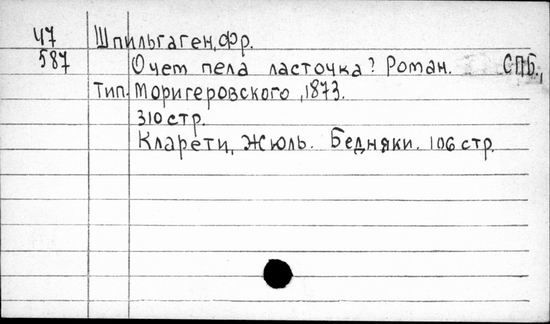 47 Шпильгаген, Фр.
587 О чем пела ласточка? Роман. СПБ.,
Тип. Моригеровского, 1873.
310 стр.
Кларети, Жюль. Бедняки. 106 стр.